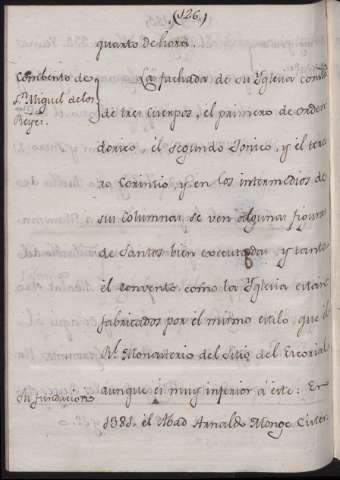 (126,)
quarto de hora.
Combento de
Sn. Miguel de los
Reyes.
La fachada de su Yglesia consta
de tres Cuerpos, el primero de orden
dorico, el segundo Jonico, y el terce
ro Corintio, y en los intermedios de
sus columnas se ven algunas figuras
de Santos bien executada y tanto
el convento como la Yglesia estan
fabricados por el mismo estilo, que el
Rl. Monasterio del Sitio del Escorial
Su fundacion
aunque es muy inferior à este: En
1381. el Abad Arnaldo Monge Cister